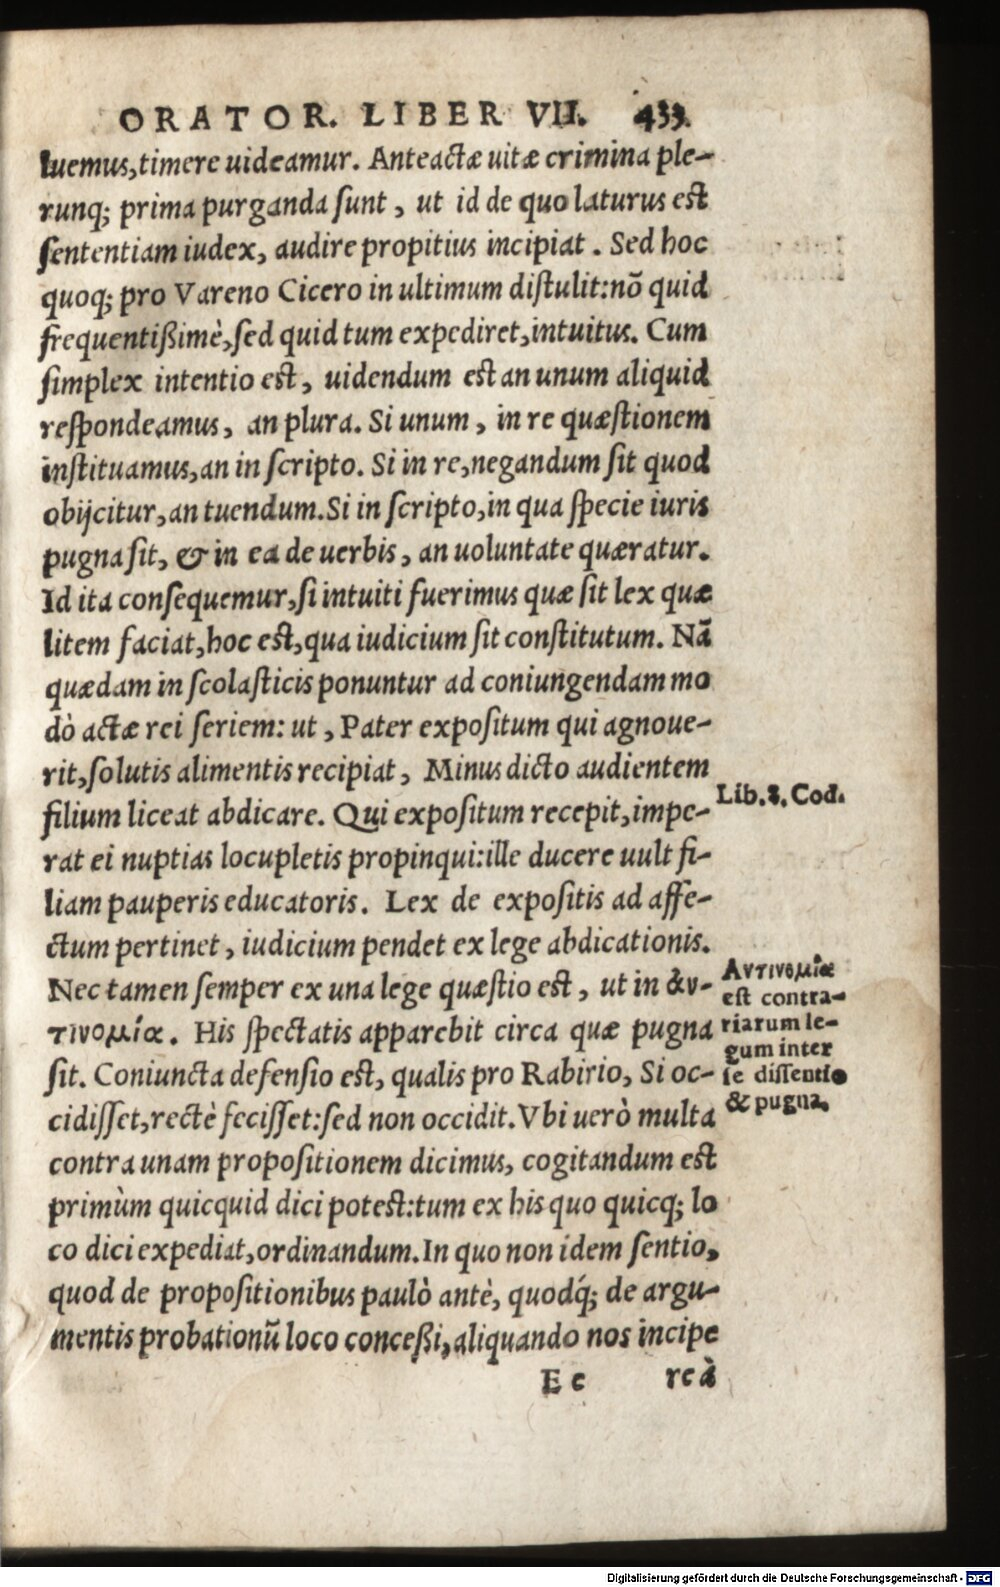 ORATOR. LIBER VII. 433.
luemus,timere uideamur. Anteactæ uitæ crimina ple-
runq; prima purganda sunt, ut id de quo laturus est
sententiam iudex, audire propitius incipiat. Sed hoc
quoq; pro Vareno Cicero in ultimum distulit:nõ quid
frequentißimè,sed quid tum expediret,intuitus. Cum
simplex intentio est, uidendum est an unum aliquid
respondeamus, an plura. Si unum, in re quæstionem
instituamus,an in scripto. Si in re,negandum sit quod
obijcitur,an tuendum.Si in scripto,in qua specie iuris
pugna sit, & in ea de uerbis, an uoluntate quæratur.
Id ita consequemur,si intuiti fuerimus quæ sit lex quæ
litem faciat,hoc est,qua iudicium sit constitutum. Nã
quædam in scolasticis ponuntur ad coniungendam mo
dò actæ rei seriem: ut, Pater expositum qui agnoue-
rit,solutis alimentis recipiat, Minus dicto audientem
filium liceat abdicare. Qui expositum recepit,impe-
Lib.8. Cod.
rat ei nuptias locupletis propinqui:ille ducere uult fi-
liam pauperis educatoris. Lex de expositis ad affe-
ctum pertinet, iudicium pendet ex lege abdicationis.
Nec tamen semper ex una lege quæstio est, ut in ἀν-
τινομία. His spectatis apparebit circa quæ pugna
sit. Coniuncta defensio est, qualis pro Rabirio, Si oc-
cidisset,rectè fecisset:sed non occidit.Vbi uerò multa
Αντινομία
est contra-
riarum le-
gum inter
se dissentio
& pugna.
contra unam propositionem dicimus, cogitandum est
primùm quicquid dici potest:tum ex his quo quicq; lo
co dici expediat,ordinandum.In quo non idem sentio,
quod de propositionibus paulò antè, quodq́; de argu-
mentis probationũ loco conceßi,aliquando nos incipe
Ee reà
Digitalisierung gefördert durch die Deutsche Forschungsgemeinschaft - DFG